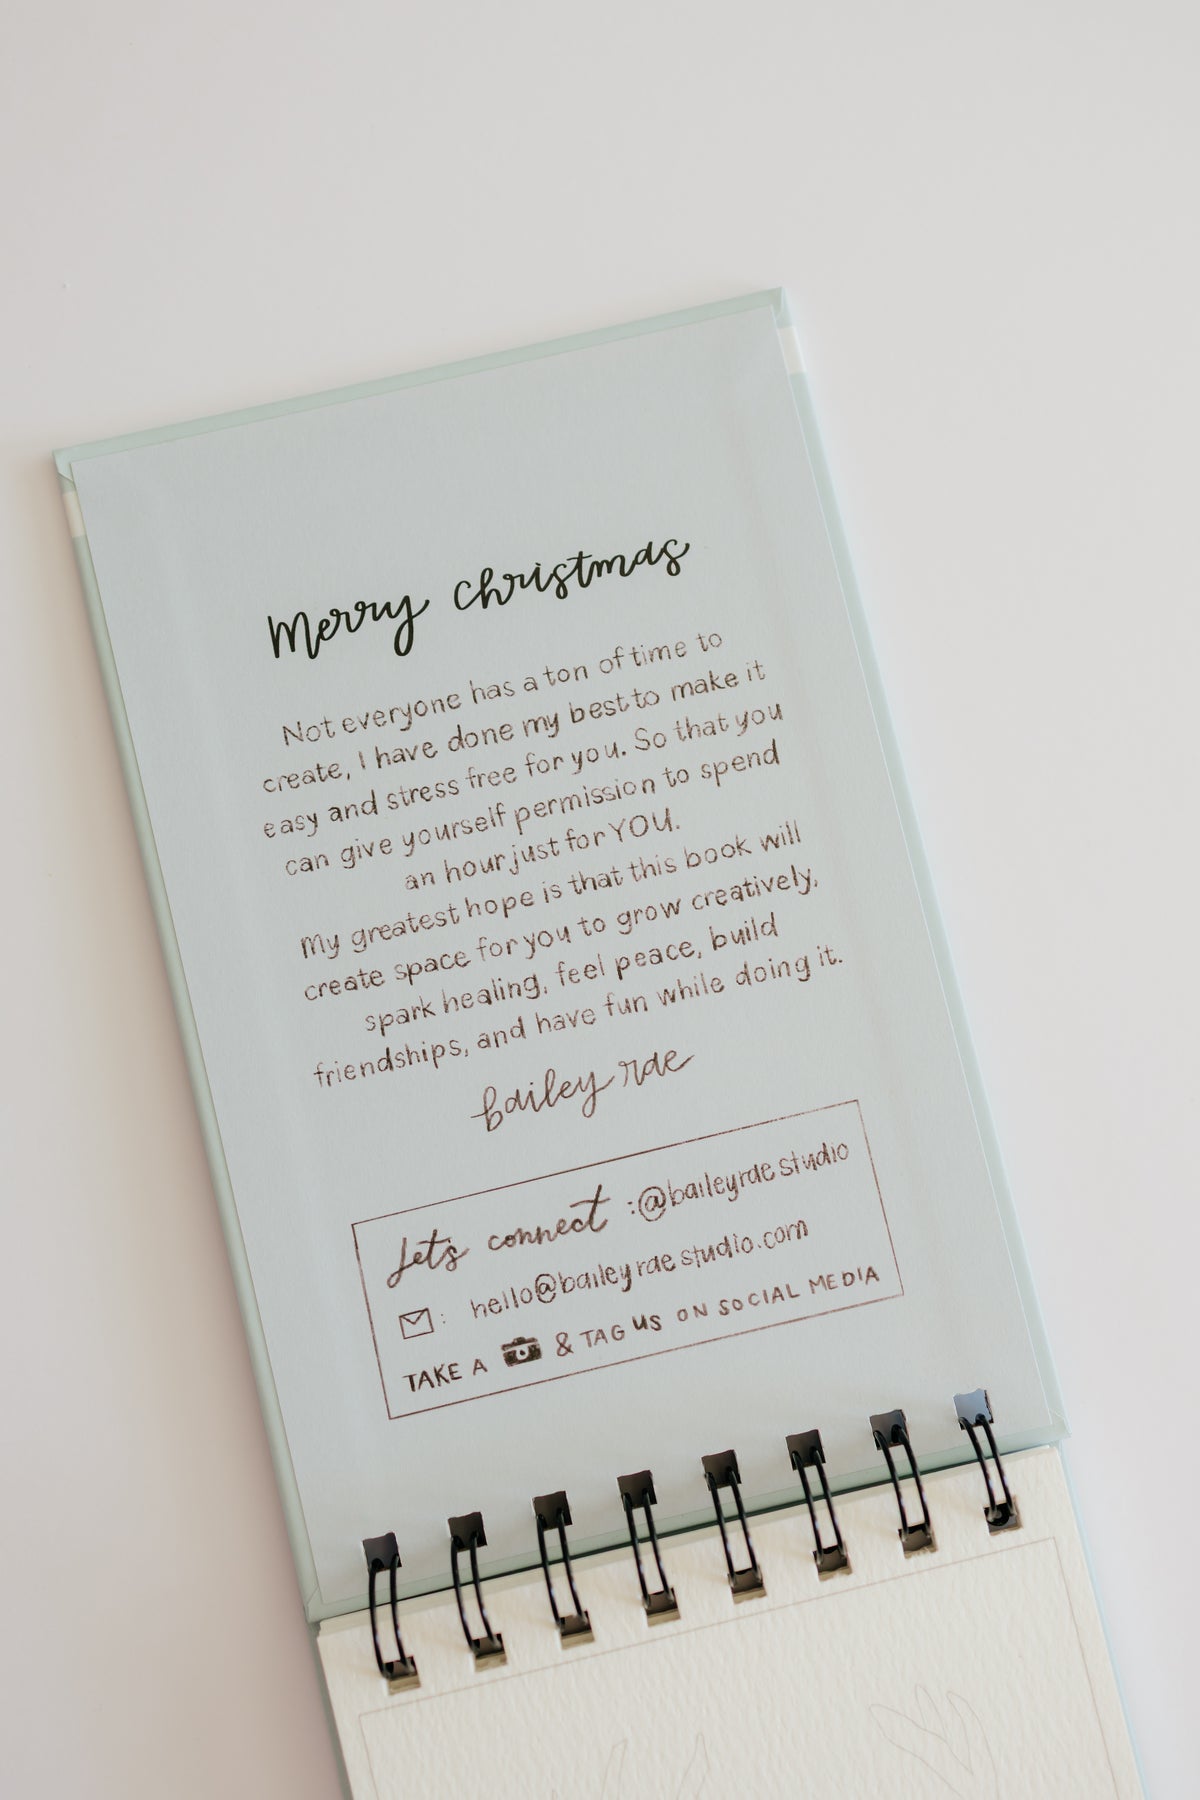 Merry Christmas
Not everyone has a ton of time to
create, I have done my best to make it
easy and stress free for you. So that you
can give yourself permission to spend
an hour just for YOU.
My greatest hope is that this book will
create space for you to grow creatively,
spark healing, feel peace, build
friendships, and have fun while doing it.
bailey rae
Let's connect :@baileyraestudio
: hello@baileyraestudio.com
TAKE A & TAG US ON SOCIAL MEDIA